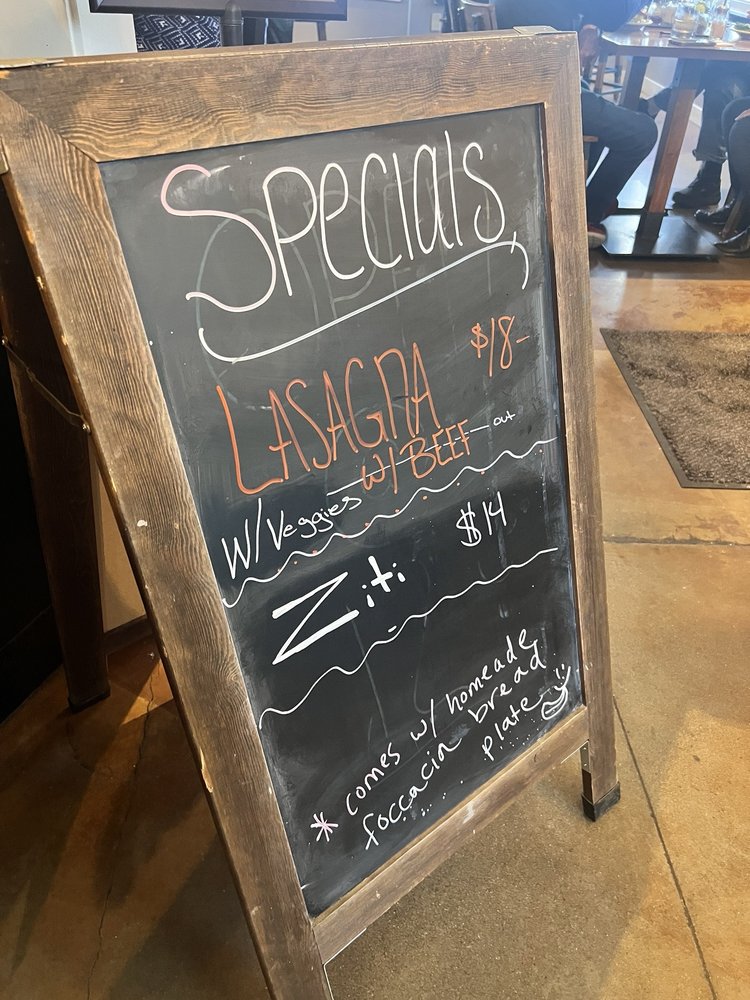 Specials
LASAGNA $18-
w/ BEEF out
W/Veggies
Ziti $14
* comes w/ homeade
foccacia bread
plate